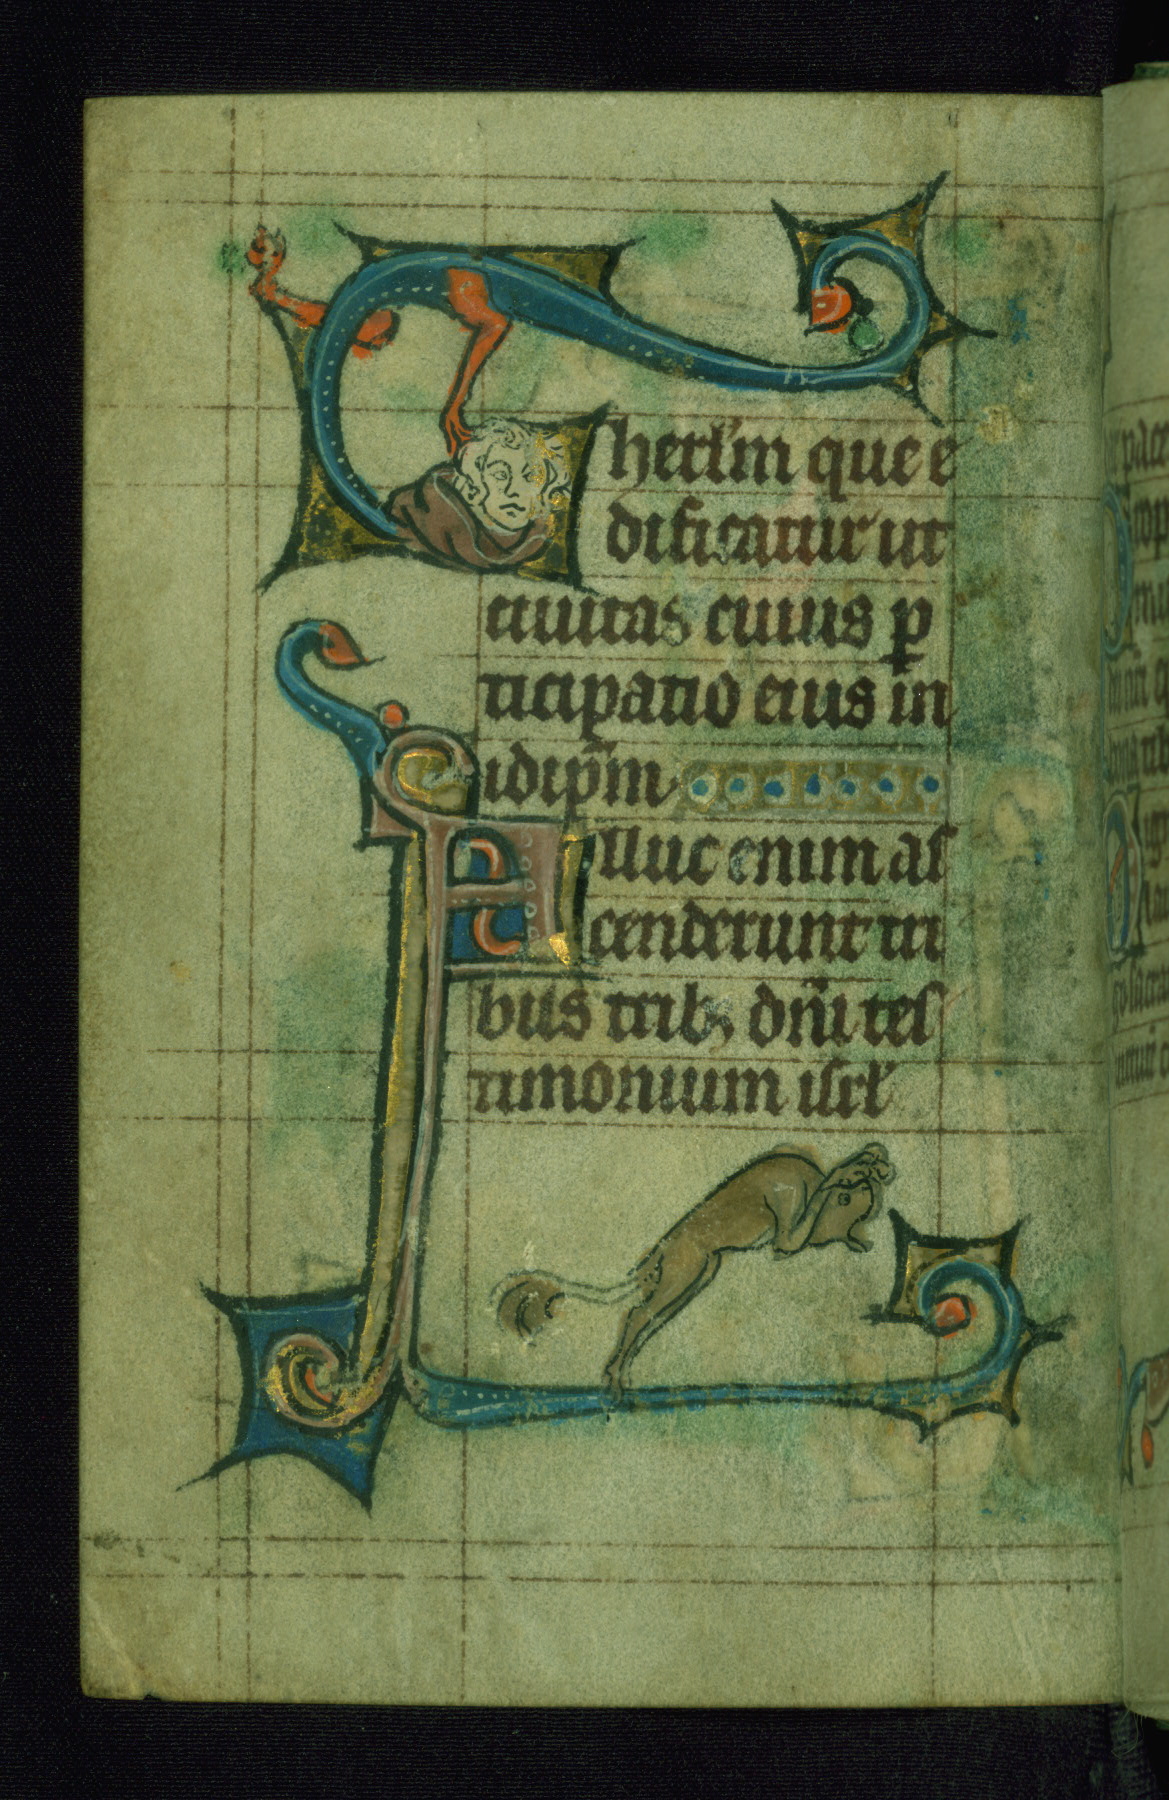 Iherl'm que e
dificatur ut
ciuitas cuius p
ticipatio eius in
idip̄m
Illuc enim as
cenderunt tri
bus trib; dn̄i tes
timonium isrl'